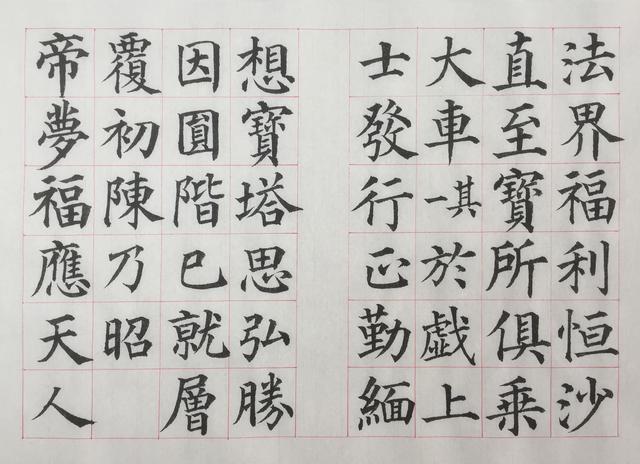 法界福利恒沙
直至寶所俱乘
大車一其於戯上
士發行正勤緬
想寶塔思弘勝
因圓階已就層
覆初陳乃昭
帝夢福應天人